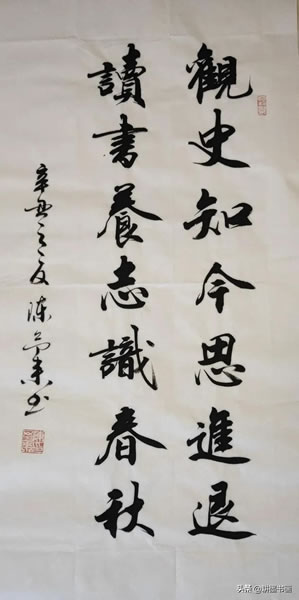 觀史知今思進退
讀書養志識春秋
辛丑之 陳 书
头条 书画